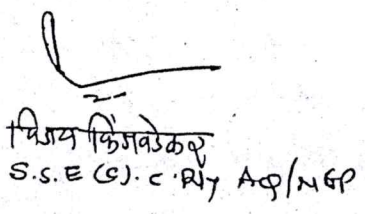 विजय किंजवडेकर
S.S.E (G). C. Rly AQ/NGP